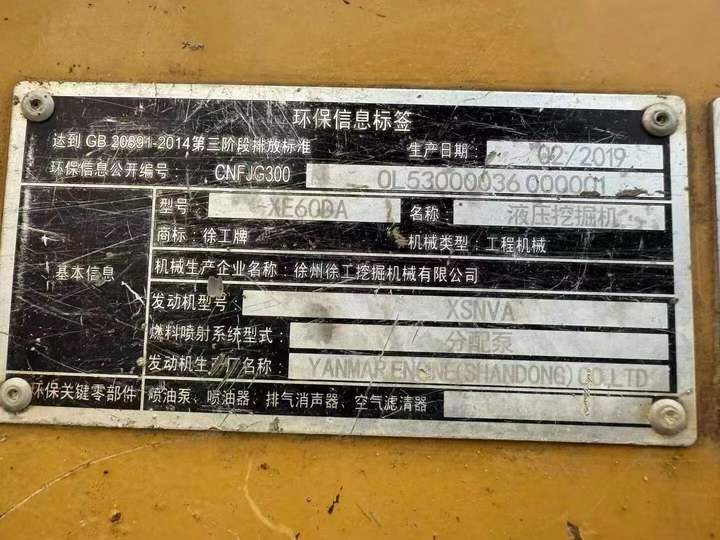 环保信息标签
达到 GB 20891-2014第三阶段排放标准 生产日期 02/2019
环保信息公开编号： CNFJG300 0L53000036 000001
基本信息
型号 XE60DA 名称： 液压挖掘机
商标：徐工牌 机械类型：工程机械
机械生产企业名称：徐州徐工挖掘机械有限公司
发动机型号： XSNVA
燃料喷射系统型式： 分配泵
发动机生产厂名称： YANMAR ENGINE(SHANDONG)CO.,LTD
环保关键零部件 喷油泵、喷油器、排气消声器、空气滤清器